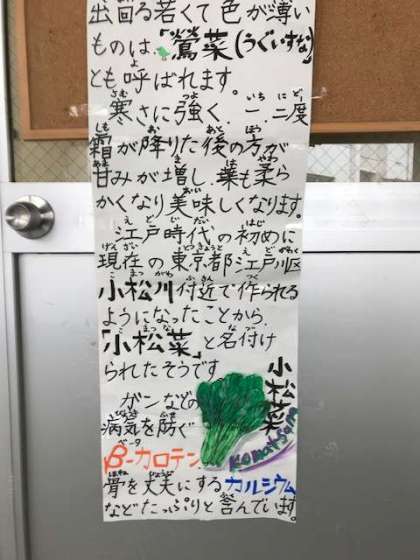 出回る若くて色が薄い
ものは、「鶯菜(うぐいすな)」
とも呼ばれます。
寒さに強く、一、二度
霜が降りた後の方が
甘みが増し、葉も柔ら
かくなり美味しくなります。
江戸時代の初めに
現在の東京都江戸川区
小松川付近で作られる
ようになったことから、
「小松菜」と名付け
られたそうです
ガンなどの
病気を防ぐ
β-カロテン、
骨を丈夫にするカルシウム
などたっぷりと含んでいます。
小松菜
Komatsuna